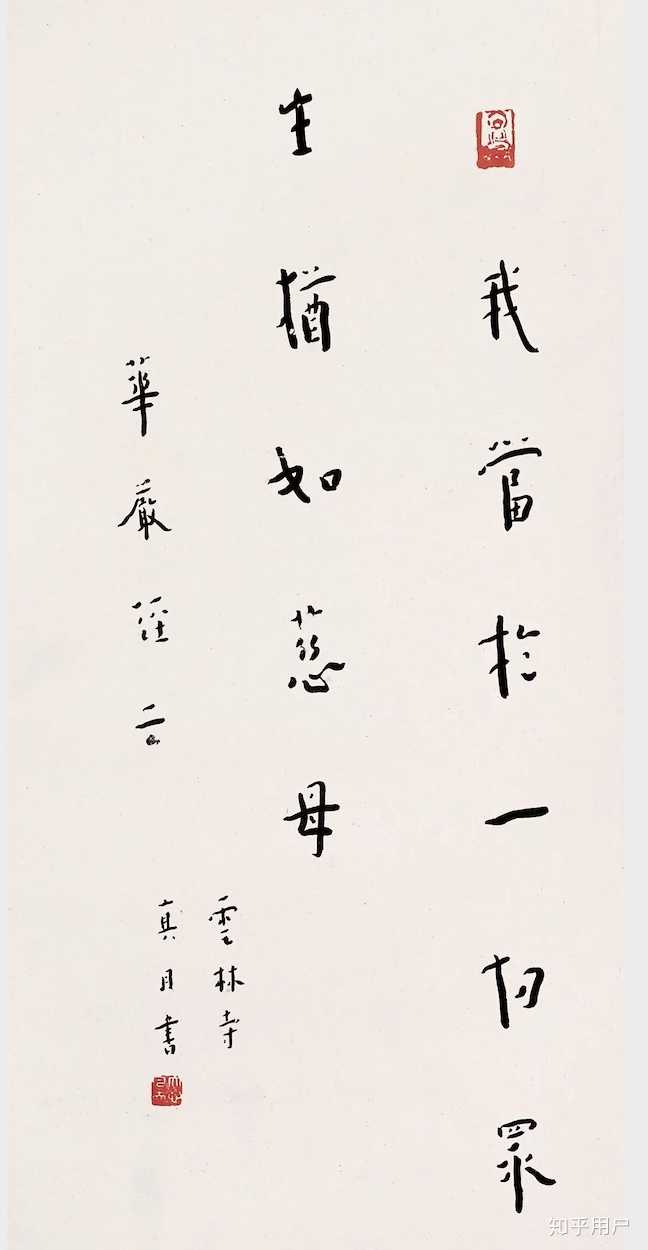 我當於一切眾
生猶如慈母
華嚴經云
雲林寺
真月書
知乎用户